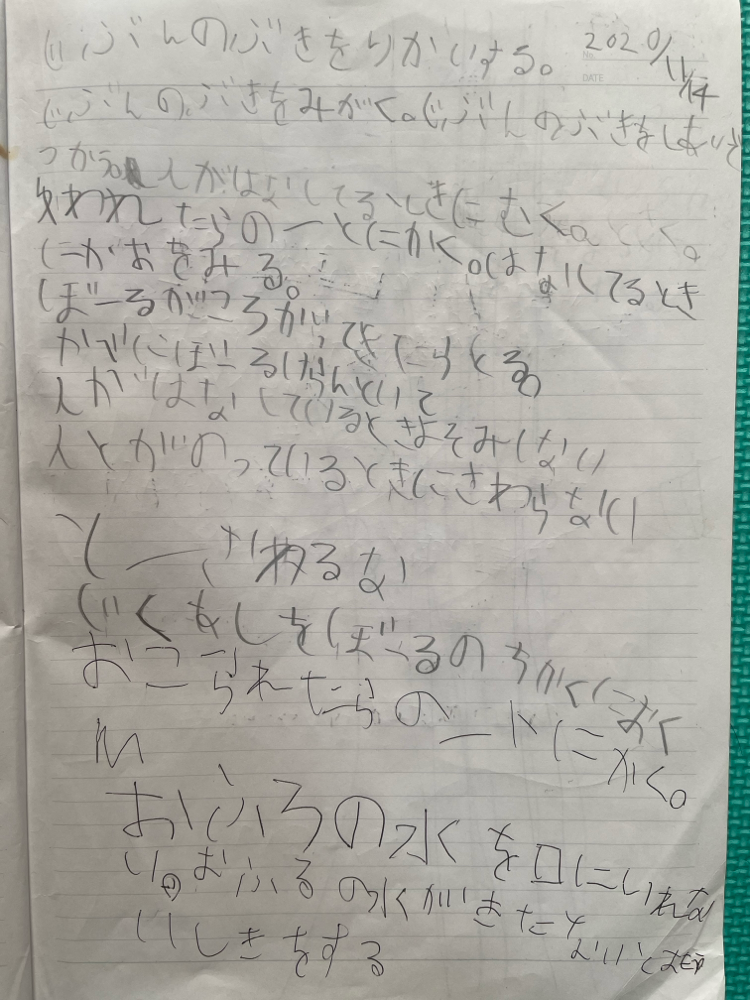 じぶんのぶきをりかいする。 2020/11/14
DATE
じぶんのぶきをみがく。じぶんのぶきをしないで
つかう。人がはなしてるときにむく。
われたらのーとにかく。はなしてるとき
にかおをみる。
ぼーるがころがってきたらとる。
かべにぼーる
人がはなしているときよそみしない
人とがのっているときにさわらない
さわるな
じくあしをぼーるのちかくにおく
おこられたらのートにかく。
おふろの水を口にいれな
い。おふろの水がきたな
いしきをする